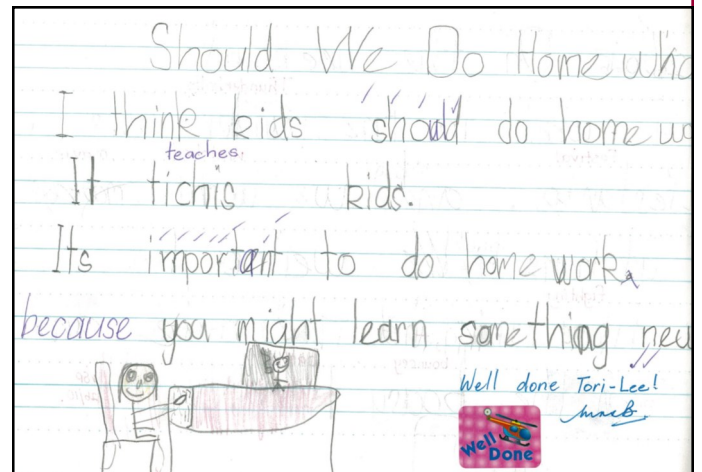 Should We Do Home who
I think kids should do home wo
teaches.
It tichis kids.
Its important to do home work.
because you might learn something new
Well done Tori-Lee!
Well Done